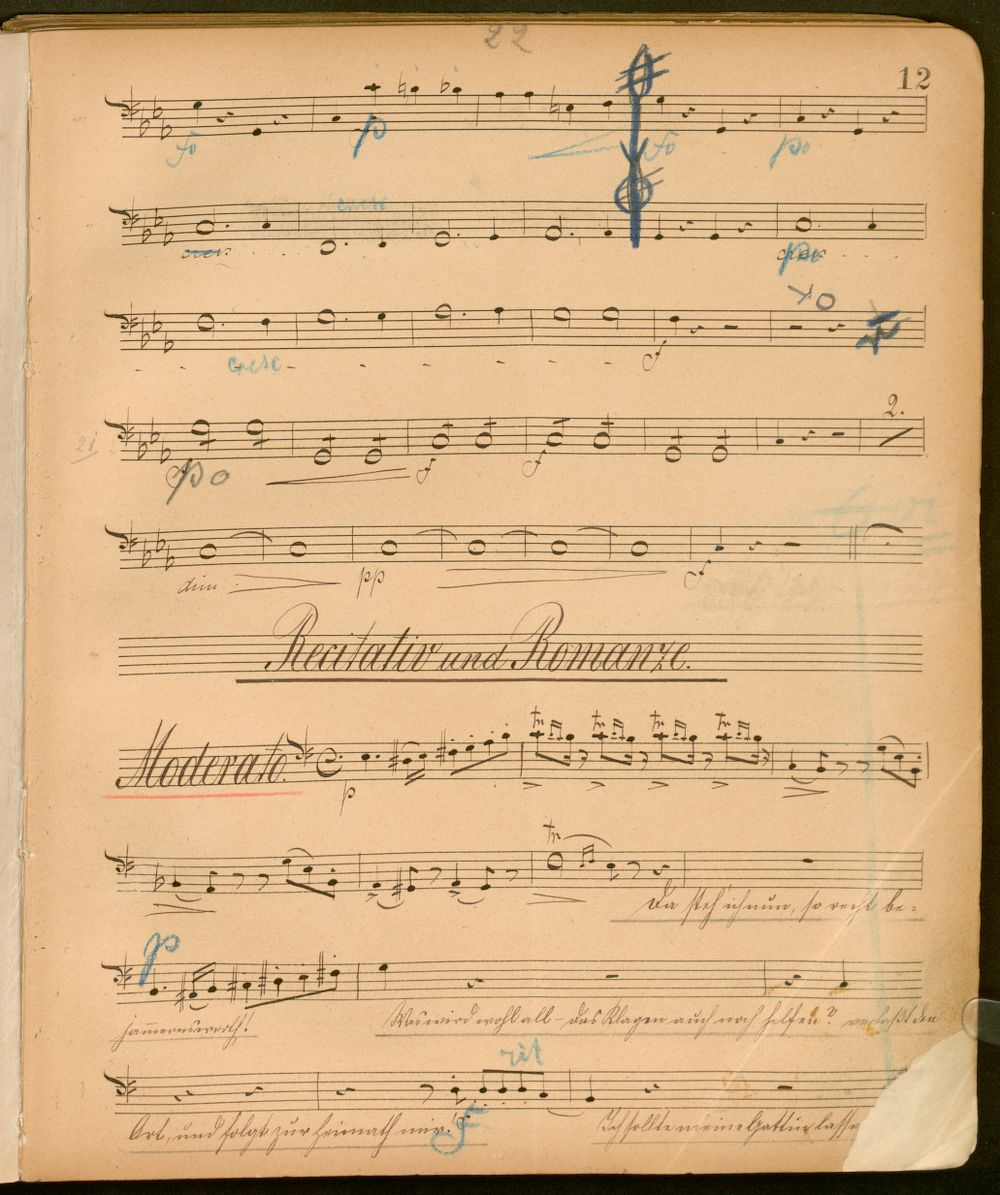 22
12
fo p fo po
cresc
cresc po
cresc f
21 po f f 2.
dim: pp f
Recitativ und Romanze.
Moderato. p tr tr tr tr
tr
Da steh' ich nun, so recht be-
p
jammernswerth! Was wird wohl all- das Klagen auch noch helfen? verlaßt den
rit
Ort, und folgt zur Heimath mir! f Ich sollte meine Gattin lasse